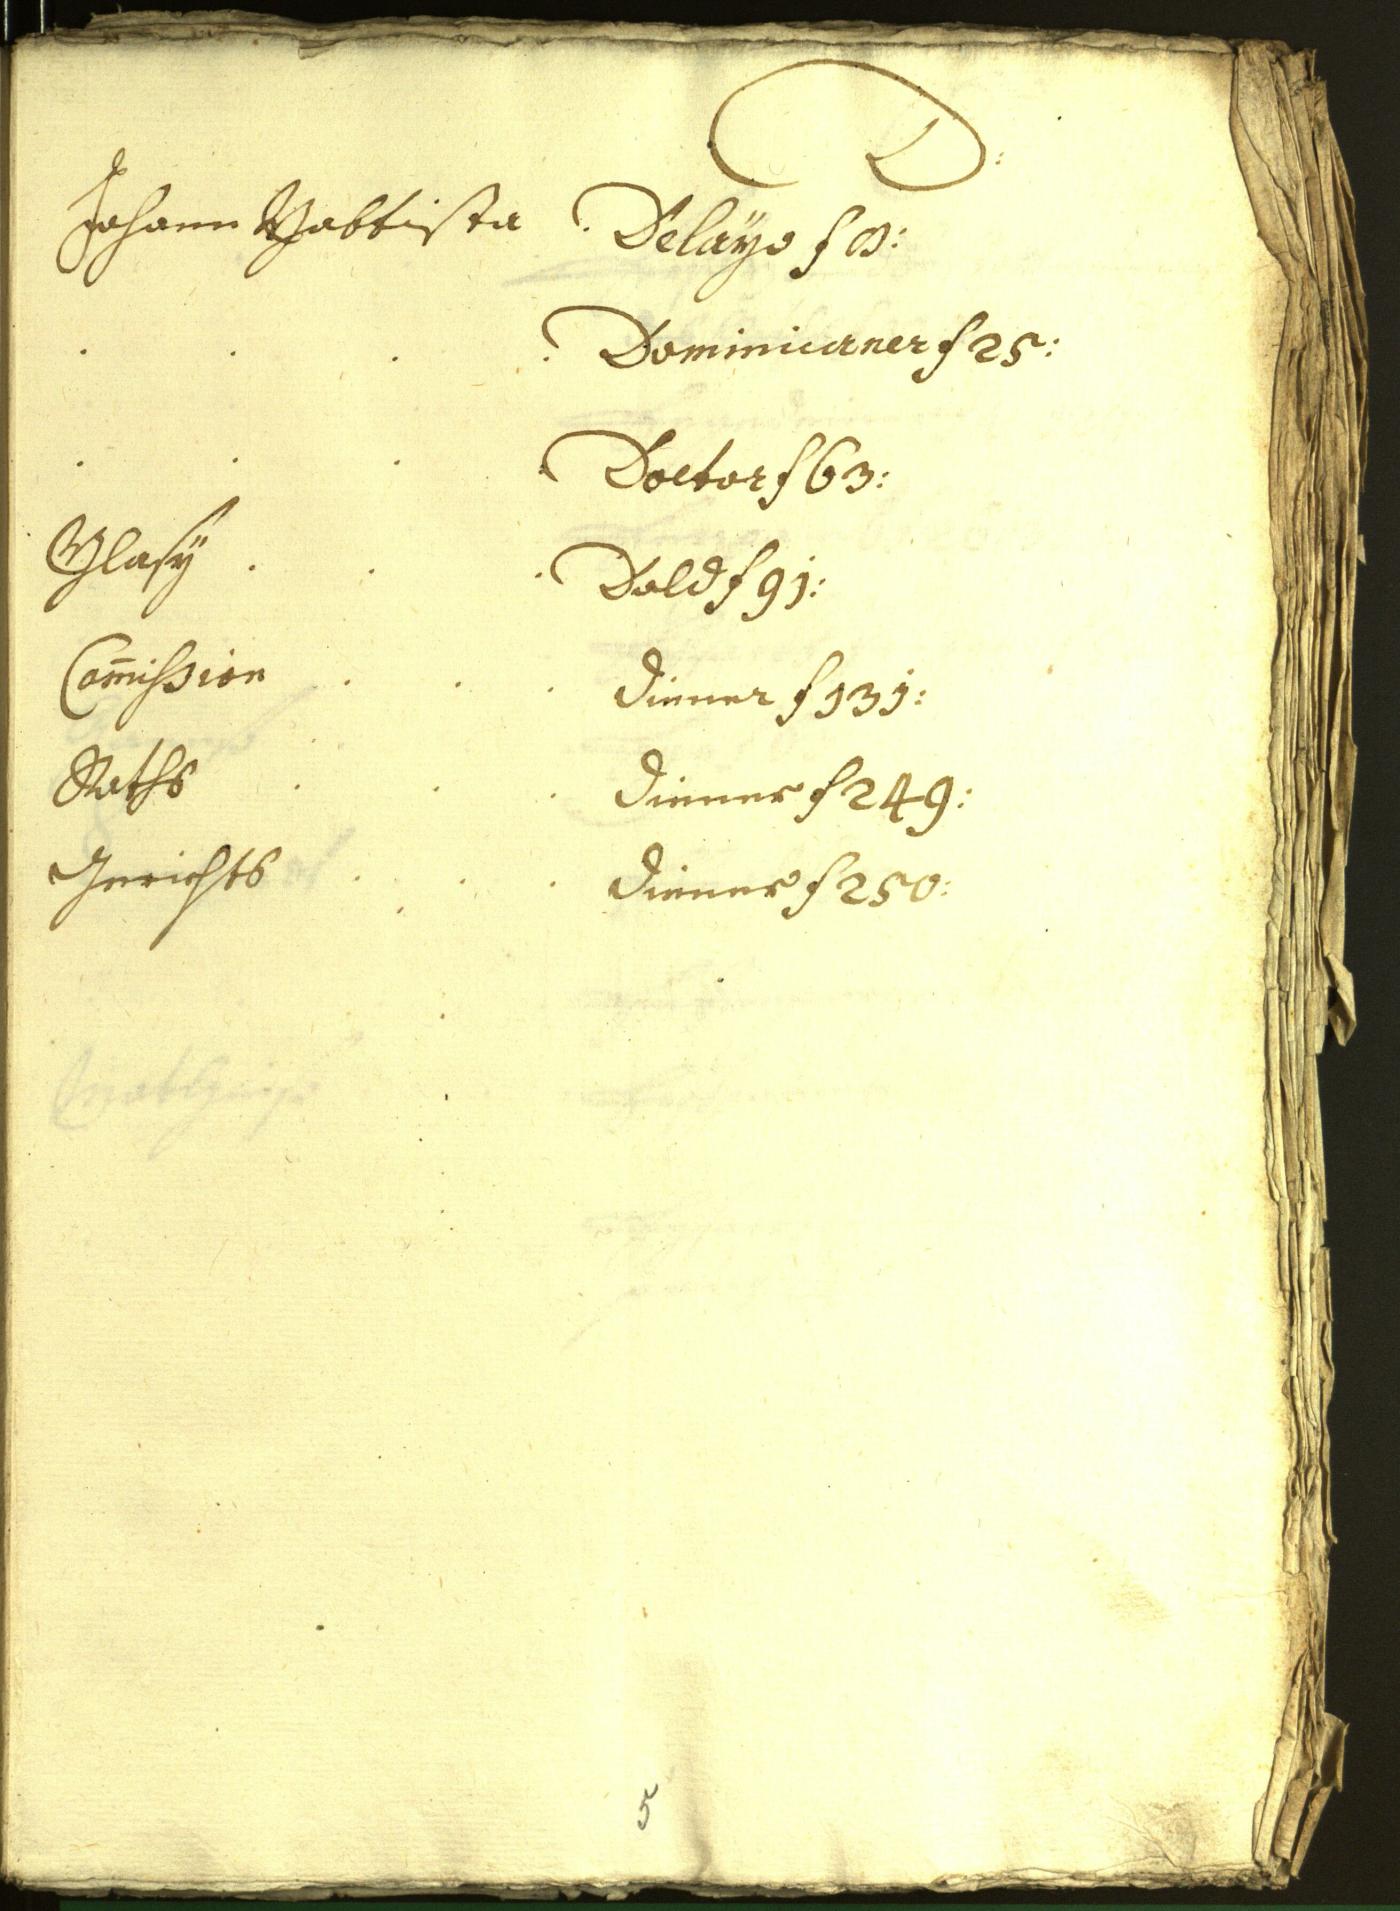 D:
Johann Babtista . Delaÿo f 8:
. . . . Dominicaner f 25:
. . . . Doctor f 63:
Blasÿ . . . Dold f 91:
Com̃ission . . . diener f 131:
Raths . . . diener f 249:
Gerichts . . . diener f 250:
5